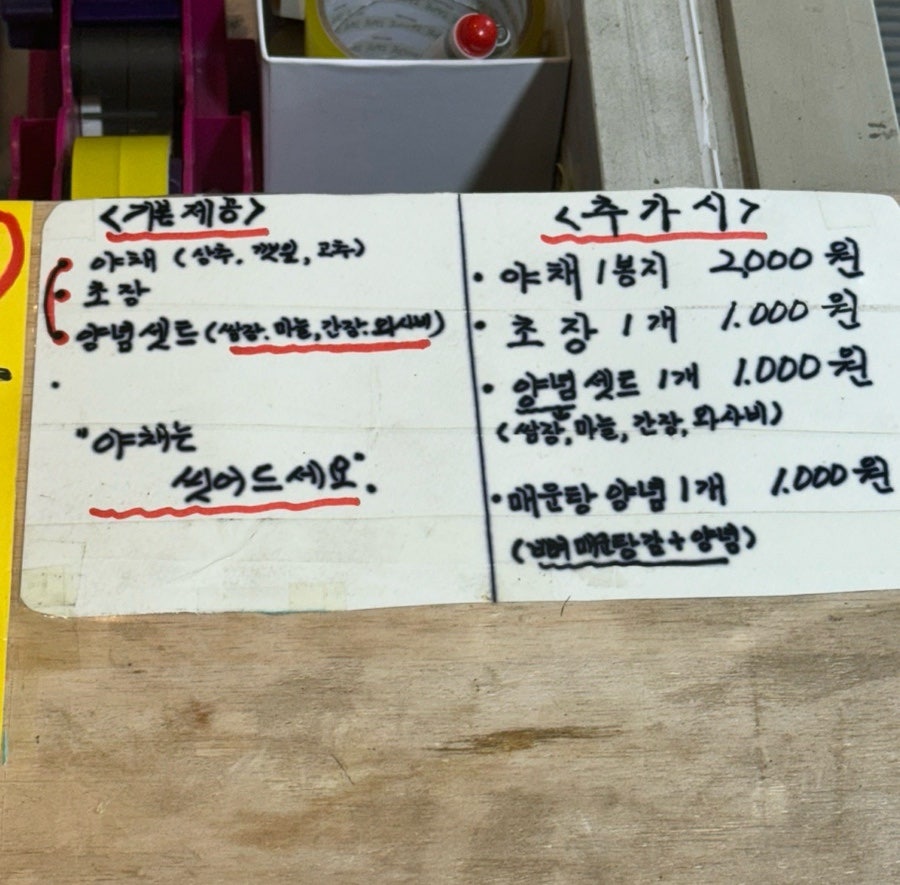 <기본제공>
야채 (상추, 깻잎, 고추)
초장
양념셋트 (쌈장. 마늘, 간장. 와사비)
"야채는
씻어드세요".
<추가시>
· 야채 1봉지 2,000원
· 초장 1개 1.000원
· 양념셋트 1개 1.000원
(쌈장, 마늘, 간장, 와사비)
· 매운탕 양념 1개 1.000원
(뼈 매운탕감 + 양념)